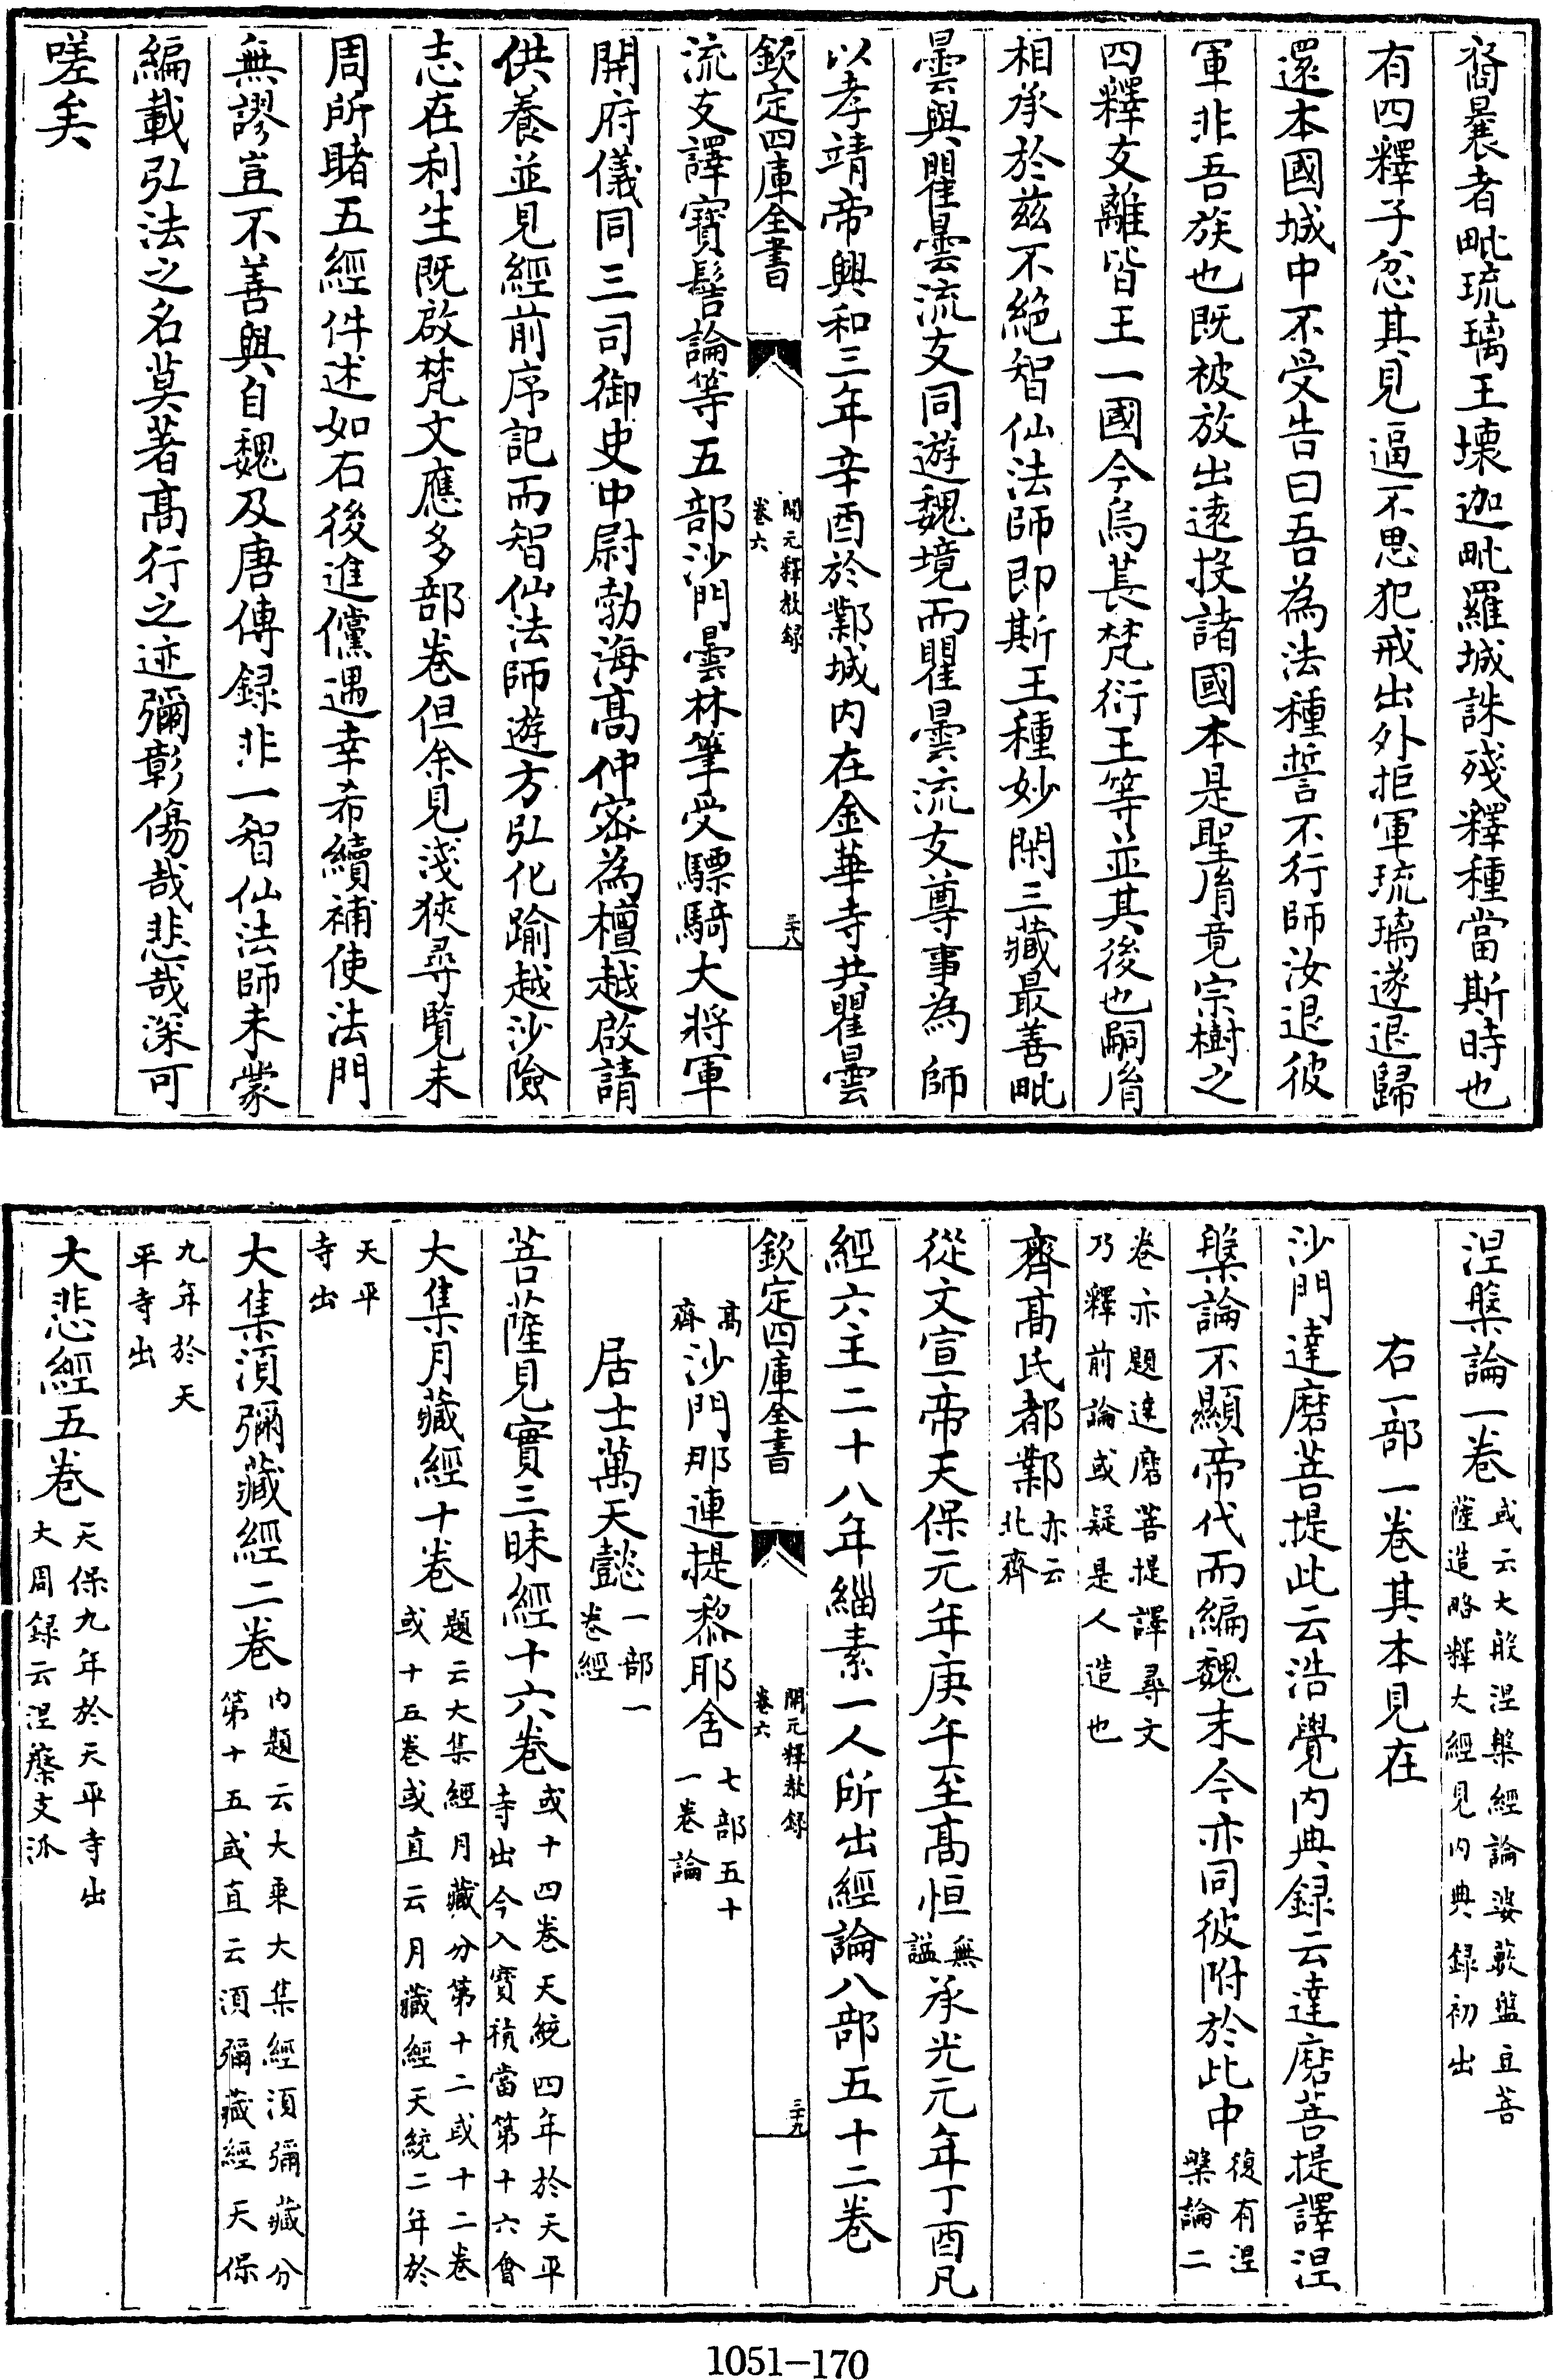 裔曩者毗琉璃王壞迦毗羅城誅殘釋種當斯時也
有四釋子忿其見逼不思犯戒出外拒軍琉璃遂退歸
還本國城中不受告曰吾為法種誓不行師汝退彼
軍非吾族也既被放出遠投諸國本是聖胤竟宗樹之
四釋支離皆王一國今烏萇梵衍王等並其後也嗣胤
相承於兹不絶智仙法師即斯王種妙閑三藏最善毗
曇與瞿曇流支同遊魏境而瞿曇流支尊事為師
以孝靖帝興和三年辛酉於鄴城内在金華寺共瞿曇
欽定四庫全書
開元釋教録
卷六
三十八
流支譯寳髻論等五部沙門曇林筆受驃騎大將軍
開府儀同三司御史中尉勃海髙仲密為檀越啟請
供養並見經前序記而智仙法師遊方弘化踰越沙險
志在利生既啟梵文應多部卷但余見淺狹尋覽未
周所睹五經件述如右後進儻遇幸希續補使法門
無謬豈不善與自魏及唐傳録非一智仙法師未蒙
編載弘法之名莫著髙行之迹彌彰傷哉悲哉深可
嗟矣
涅槃論一卷
或云大般涅槃經論婆藪盤豆菩
薩造略釋大經見内典録初出
右一部一卷其本見在
沙門達磨菩提此云浩覺内典録云達磨菩提譯涅
槃論不顯帝代而編魏末今亦同彼附於此中
復有涅
槃論二
卷亦題達磨菩提譯尋文
乃釋前論或疑是人造也
齊髙氏都鄴
亦云
北齊
從文宣帝天保元年庚午至髙恒
無
諡
承光元年丁酉凡
經六主二十八年緇素一人所出經論八部五十二卷
欽定四庫全書
開元釋教録
卷六
三十九
髙
齊
沙門那連提黎耶舍
七部五十
一卷論
居士萬天懿
一部一
卷經
菩薩見實三昧經十六卷
或十四卷天統四年於天平
寺出今入寳積當第十六會
大集月藏經十卷
題云大集經月藏分第十二或十二卷
或十五卷或直云月藏經天統二年於
天平
寺出
大集湏彌藏經二卷
内題云大乘大集經湏彌藏分
第十五或直云湏彌藏經天保
九年於天
平寺出
大悲經五卷
天保九年於天平寺出
大周録云涅槃支派
1051-170